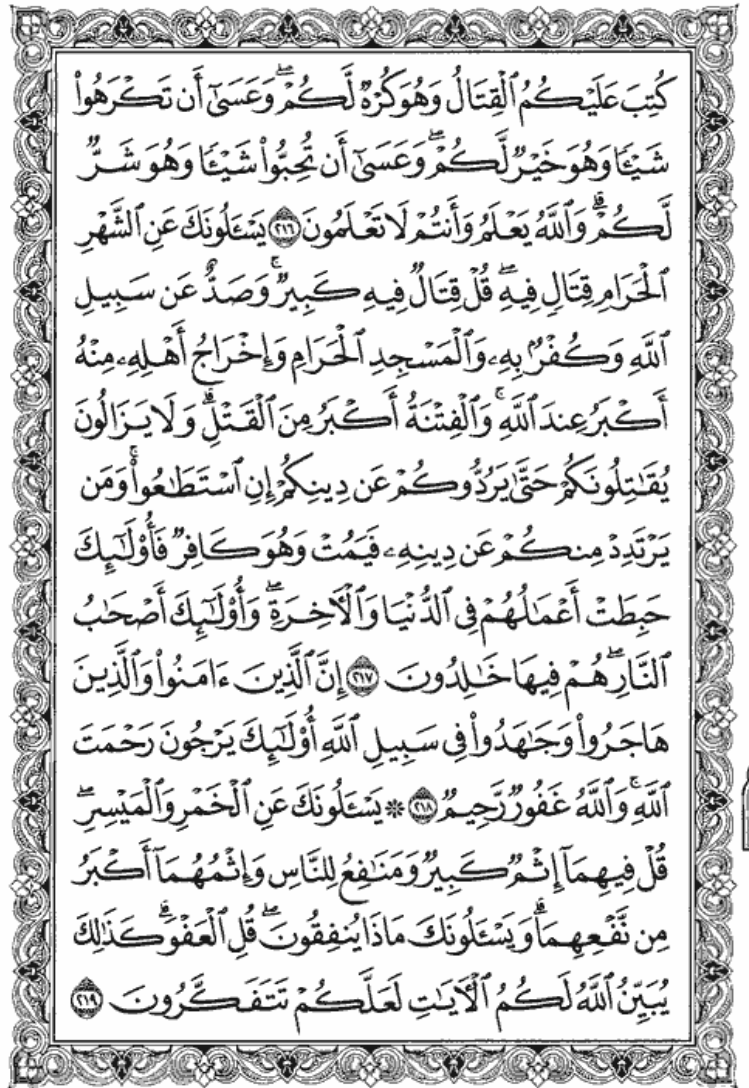 كُتِبَ عَلَيْكُمُ ٱلْقِتَالُ وَهُوَ كُرْهٌ لَّكُمْ ۖ وَعَسَىٰٓ أَن تَكْرَهُوا۟
شَيْـًٔا وَهُوَ خَيْرٌ لَّكُمْ ۖ وَعَسَىٰٓ أَن تُحِبُّوا۟ شَيْـًٔا وَهُوَ شَرٌّ
لَّكُمْ ۗ وَٱللَّهُ يَعْلَمُ وَأَنتُمْ لَا تَعْلَمُونَ ٢١٦ يَسْـَٔلُونَكَ عَنِ ٱلشَّهْرِ
ٱلْحَرَامِ قِتَالٍ فِيهِ ۖ قُلْ قِتَالٌ فِيهِ كَبِيرٌ ۚ وَصَدٌّ عَن سَبِيلِ
ٱللَّهِ وَكُفْرٌۢ بِهِۦ وَٱلْمَسْجِدِ ٱلْحَرَامِ وَإِخْرَاجُ أَهْلِهِۦ مِنْهُ
أَكْبَرُ عِندَ ٱللَّهِ ۚ وَٱلْفِتْنَةُ أَكْبَرُ مِنَ ٱلْقَتْلِ ۗ وَلَا يَزَالُونَ
يُقَـٰتِلُونَكُمْ حَتَّىٰ يَرُدُّوكُمْ عَن دِينِكُمْ إِنِ ٱسْتَطَـٰعُوا۟ ۚ وَمَن
يَرْتَدِدْ مِنكُمْ عَن دِينِهِۦ فَيَمُتْ وَهُوَ كَافِرٌ فَأُو۟لَـٰٓئِكَ
حَبِطَتْ أَعْمَـٰلُهُمْ فِى ٱلدُّنْيَا وَٱلْـَٔاخِرَةِ ۖ وَأُو۟لَـٰٓئِكَ أَصْحَـٰبُ
ٱلنَّارِ ۖ هُمْ فِيهَا خَـٰلِدُونَ ٢١٧ إِنَّ ٱلَّذِينَ ءَامَنُوا۟ وَٱلَّذِينَ
هَاجَرُوا۟ وَجَـٰهَدُوا۟ فِى سَبِيلِ ٱللَّهِ أُو۟لَـٰٓئِكَ يَرْجُونَ رَحْمَتَ
ٱللَّهِ ۚ وَٱللَّهُ غَفُورٌ رَّحِيمٌ ٢١٨ ۞ يَسْـَٔلُونَكَ عَنِ ٱلْخَمْرِ وَٱلْمَيْسِرِ ۖ
قُلْ فِيهِمَآ إِثْمٌ كَبِيرٌ وَمَنَـٰفِعُ لِلنَّاسِ وَإِثْمُهُمَآ أَكْبَرُ
مِن نَّفْعِهِمَا ۗ وَيَسْـَٔلُونَكَ مَاذَا يُنفِقُونَ ۖ قُلِ ٱلْعَفْوَ ۗ كَذَٰلِكَ
يُبَيِّنُ ٱللَّهُ لَكُمُ ٱلْـَٔايَـٰتِ لَعَلَّكُمْ تَتَفَكَّرُونَ ٢١٩